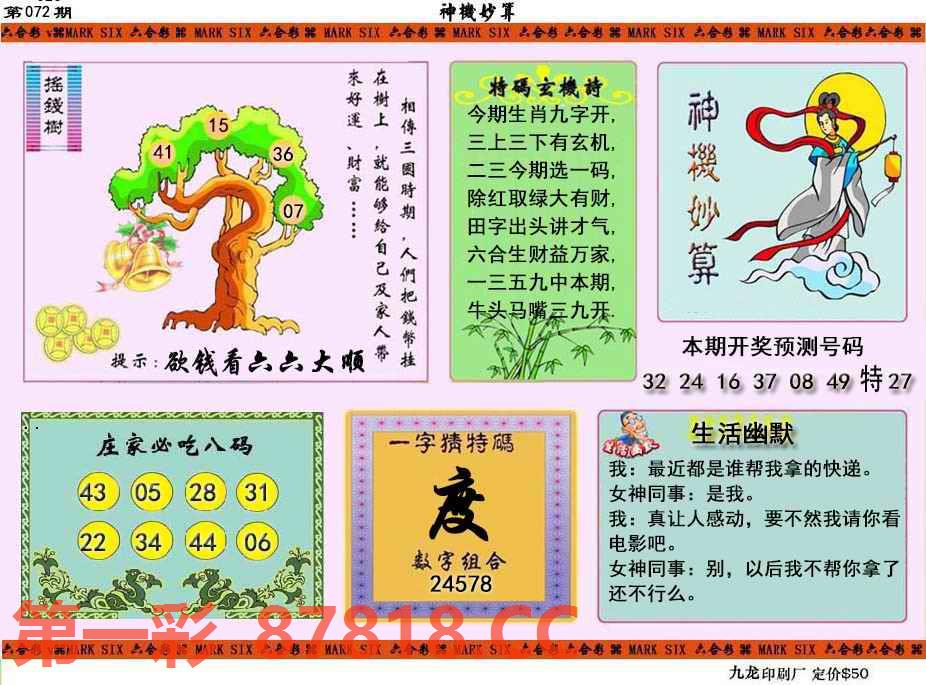 第072期
神機妙算
六合彩 MARK SIX 六合彩 MARK SIX 六合彩 MARK SIX 六合彩 MARK SIX 六合彩 六合彩 MARK SIX 六合彩 MARK SIX 六合彩六合彩
搖錢樹
相傳三國時期，人們把錢幣挂
在樹上，就能够給自己及家人帶
來好運、財富……
15
41
36
07
提示：欲钱看六六大顺
特碼玄機詩
今期生肖九字开,
三上三下有玄机,
二三今期选一码,
除红取绿大有财,
田字出头讲才气,
六合生财益万家,
一三五九中本期,
牛头马嘴三九开.
神機妙算
本期开奖预测号码
32 24 16 37 08 49 特27
庄家必吃八码
43 05 28 31
22 34 44 06
一字猜特碼
度
数字组合
24578
生活幽默
生活幽默
我：最近都是谁帮我拿的快递。
女神同事：是我。
我：真让人感动，要不然我请你看
电影吧。
女神同事：别，以后我不帮你拿了
还不行么。
第一彩 87818.CC
六合彩 MARK SIX 六合彩 MARK SIX 六合彩 MARK SIX 六合彩 MARK SIX 六合彩 六合彩 MARK SIX 六合彩 MARK SIX 六合彩六合彩
九龙印刷厂 定价$50